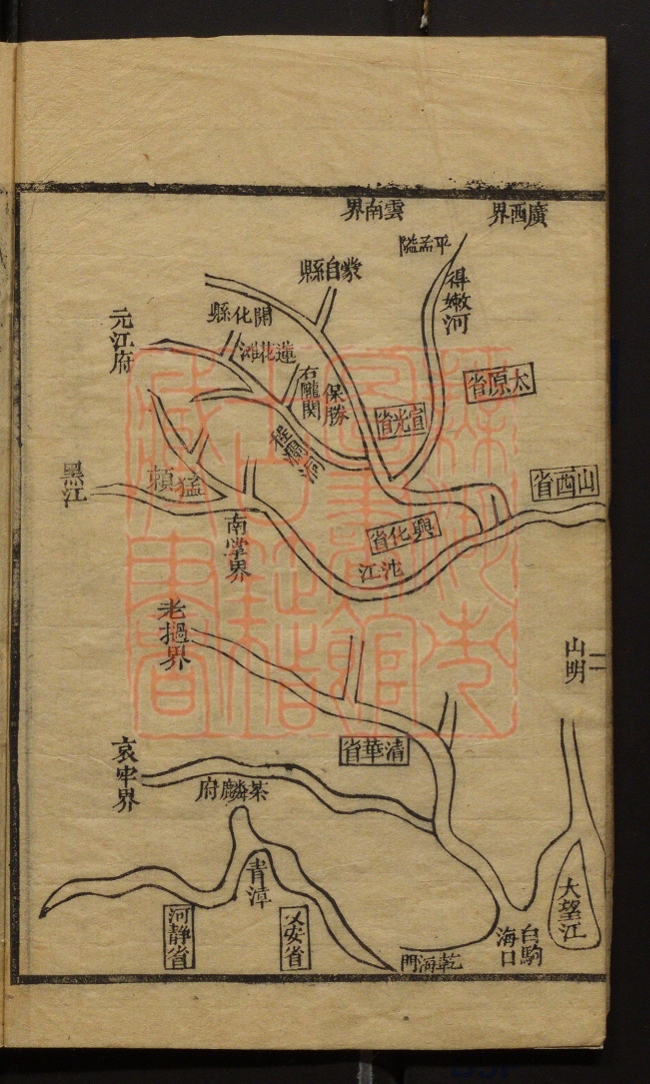 廣西界
雲南界
平孟隘
得嫩河
蒙自縣
開化縣
蓮花灘
元江府
右隴関
保勝
太原省
宣光省
山西省
黑江
猛賴
興化省
沱江
南掌界
老撾界
山明
清華省
哀牢界
茶麟府
青漳
大望江
河靜省
乂安省
白駒海口
乾海門